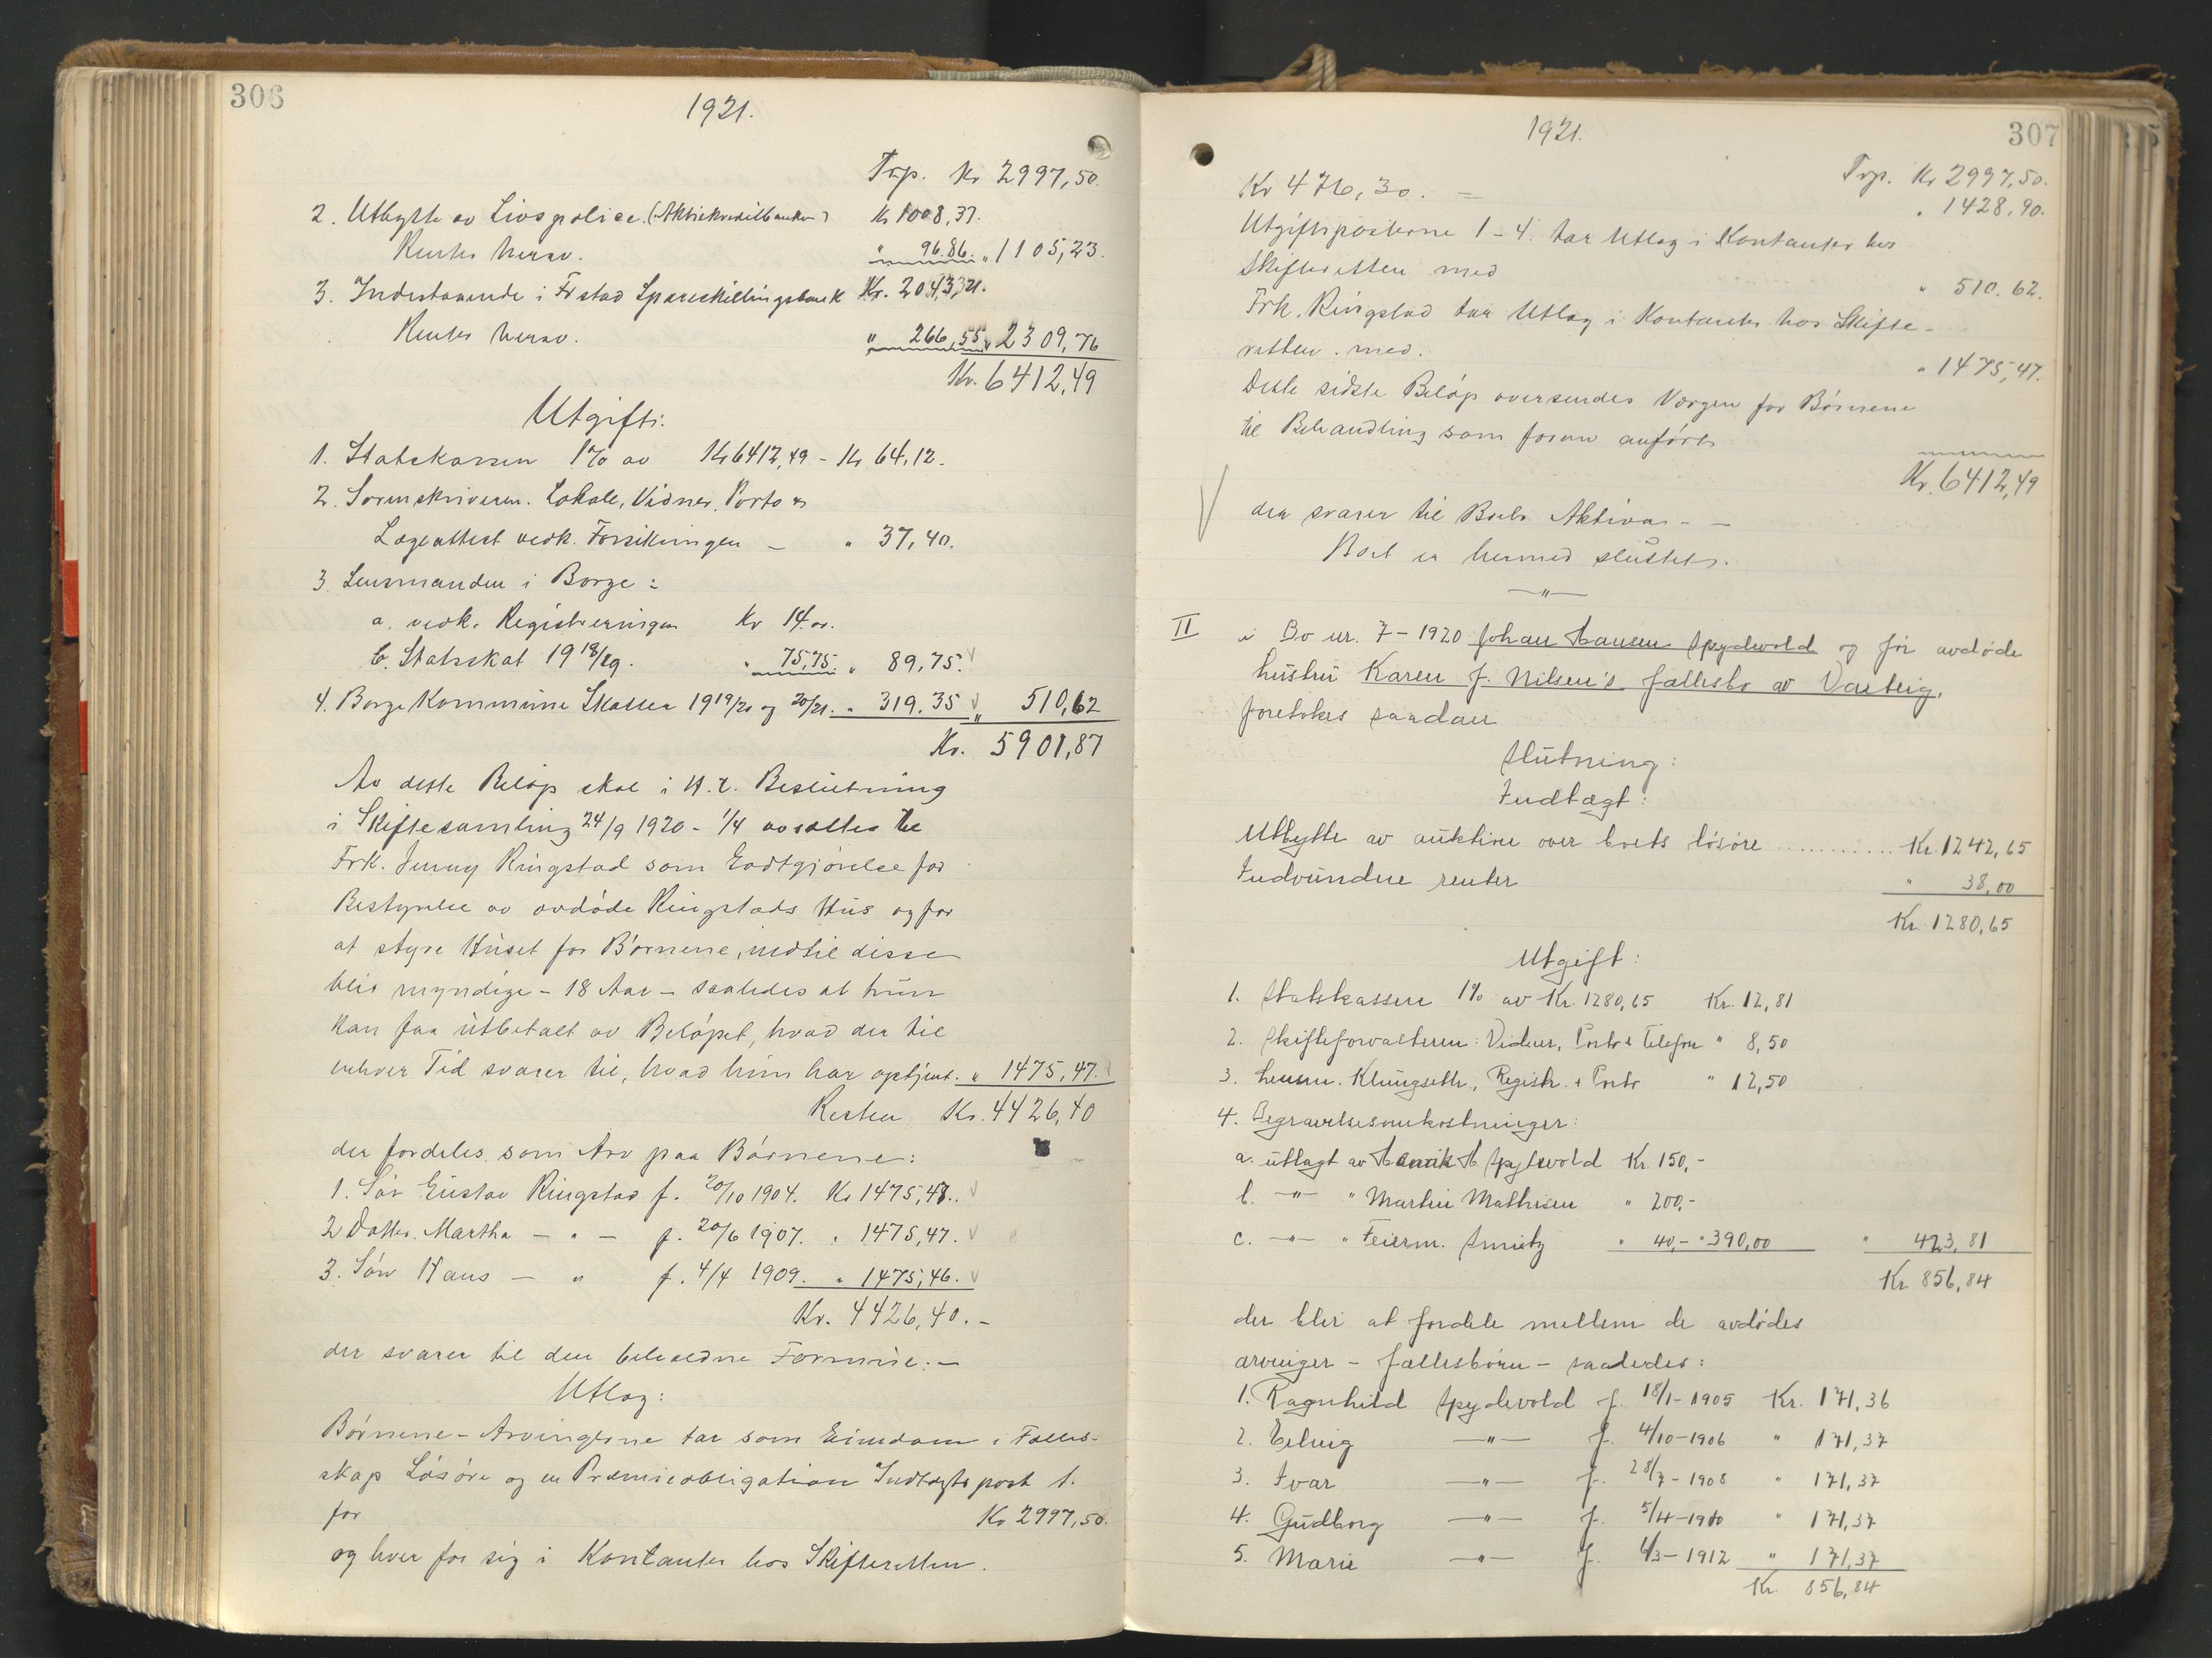 306
1921.
Trp. Kr 2997,50.
2. Utbytte av Livspolice (Aktiekreditbanken) Kr 1008,37.
Renter herav. " 96.86. " 1105,23.
3. Indestaaende i Frstad Spareskillingsbank Kr. 2043,21.
Renter herav. " 266,55 " 2309,76
Kr. 6412,49
Utgift:
1. Statskassen 1% av Kr 6412,49 - Kr 64,12.
2. Sorenskriveren. Lokale, Vidner, Porto &
Lægeattest vedk. Forsikringen - " 37,40.
3. Lensmanden i Borge:
a. vedk. Registreringen Kr 14.00.
b. Statsskat 19 18/19. " 75,75. " 89,75.
4. Borge Kommune Skatter 19 19/20 og 20/21. " 319.35 " 510,62
Kr. 5901,87
Av dette Beløp skal i H. t. Beslutning
i Skiftesamling 24/9 1920 - 1/4 avsættes til
Frk. Jenny Ringstad som Godtgjørelse for
Bestyrelse av avdøde Ringstads Hus og for
at styre Huset for Børnene, indtil disse
blir myndige - 18 Aar - saaledes at hun
kan faa utbetalt av Beløpet, hvad der til
enhver Tid svarer til, hvad hun har optjent. " 1475,47
Resten Kr. 4426,40
der fordeles som Arv paa Børnene:
1. Søn Gustav Ringstad f. 20/10 1904. Kr 1475,47.
2 Datter Martha - " - f. 20/6 1907. " 1475,47.
3. Søn Hans - " f. 4/4 1909. " 1475,46.
Kr. 4426,40.-
der svarer til den beholdne Formue.-
Utlæg:
Børnene - Arvingerne tar som Eiendom i Fælles-
skap Løsøre og en Præmieobligation Indtægtspost 1.
for Kr 2997,50.
og hver for sig i Kontanter hos Skifteretten.
307
1921.
Trp. Kr 2997,50.
Kr 476,30. = " 1428,90.
Utgiftsposterne 1-4. tar Utlæg i Kontanter hos
Skifteretten med " 510.62.
Frk. Ringstad tar Utlæg i Kontanter hos Skifte-
retten med. " 1475,47.
Dette sidste Beløp oversendes Værgen for Børnene
til Behandling som foran anført
Kr. 6412,49
der svarer til Boets Aktiva - -
Boet er hermed sluttet.
-"-
II i Bo nr. 7 - 1920 Johan Hansen Spydevold og før avdøde
hustru Karen J. Nilsen's fællesbo av Varteig,
foretokes saadan
Slutning:
Indtægt:
Utbytte av auktion over boets løsøre ........... Kr. 1242,65
Indvundne renter " 38,00
Kr. 1280,65
Utgift:
1. Statskassen 1% av Kr. 1280,65 Kr. 12,81
2. Skifteforvalteren: Vidner, Porto & Telefon " 8,50
3. Lensm. Klungseth, Registr. & Porto " 12,50
4. Begravelsesomkostninger:
a. utlagt av Henrik H. Spydevold Kr. 150,-
b. -"- " Martin Mathisen " 200,-
c. -"- " Feierm. " 40,- " 390,00 " 423,81
Kr. 856,84
der blir at fordele mellem de avdødes
arvinger - fællesbørn - saaledes:
1. Ragnhild Spydevold f. 18/1-1905 Kr. 171,36
2. -"- f. 4/10-1906 " 171,37
3. Ivar -"- f. 28/7-1908 " 171,37
4. Gudborg -"- f. 5/4-1910 " 171,37
5. Marie -"- f. 4/3-1912 " 171,37
Kr. 856,84